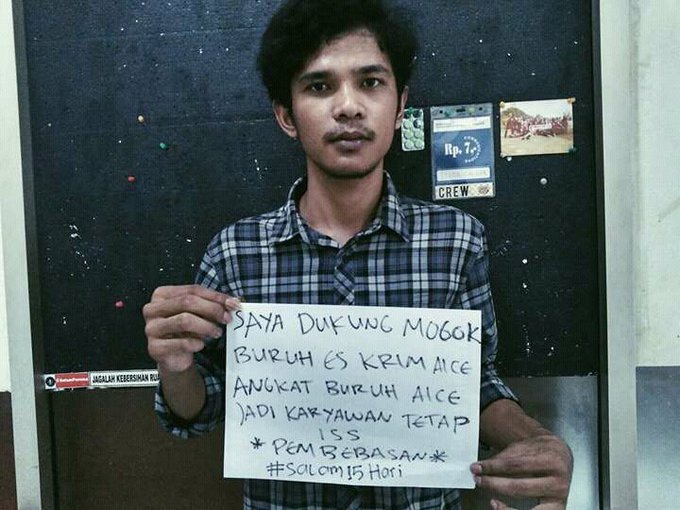 Rp. 7,-
CREW
SAYA DUKUNG MOGOK
BURUH ES KRIM AICE
ANGKAT BURUH AICE
JADI KARYAWAN TETAP
ISS
*PEMBEBASAN*
#Salam15Hari
JAGALAH KEBERSIHAN RUA